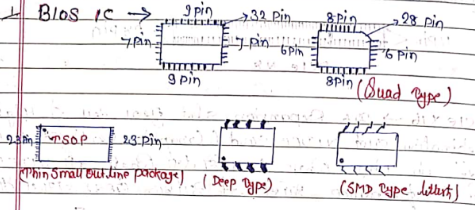 BIOS IC →
9 pin
32 Pin
7 Pin
7 Pin
9 Pin
8 Pin
28 Pin
6 Pin
6 Pin
8 Pin
(Quad Type)
23 Pin
TSOP
23 Pin
(Thin Small Outline package)
(Deep Type)
(SMD Type